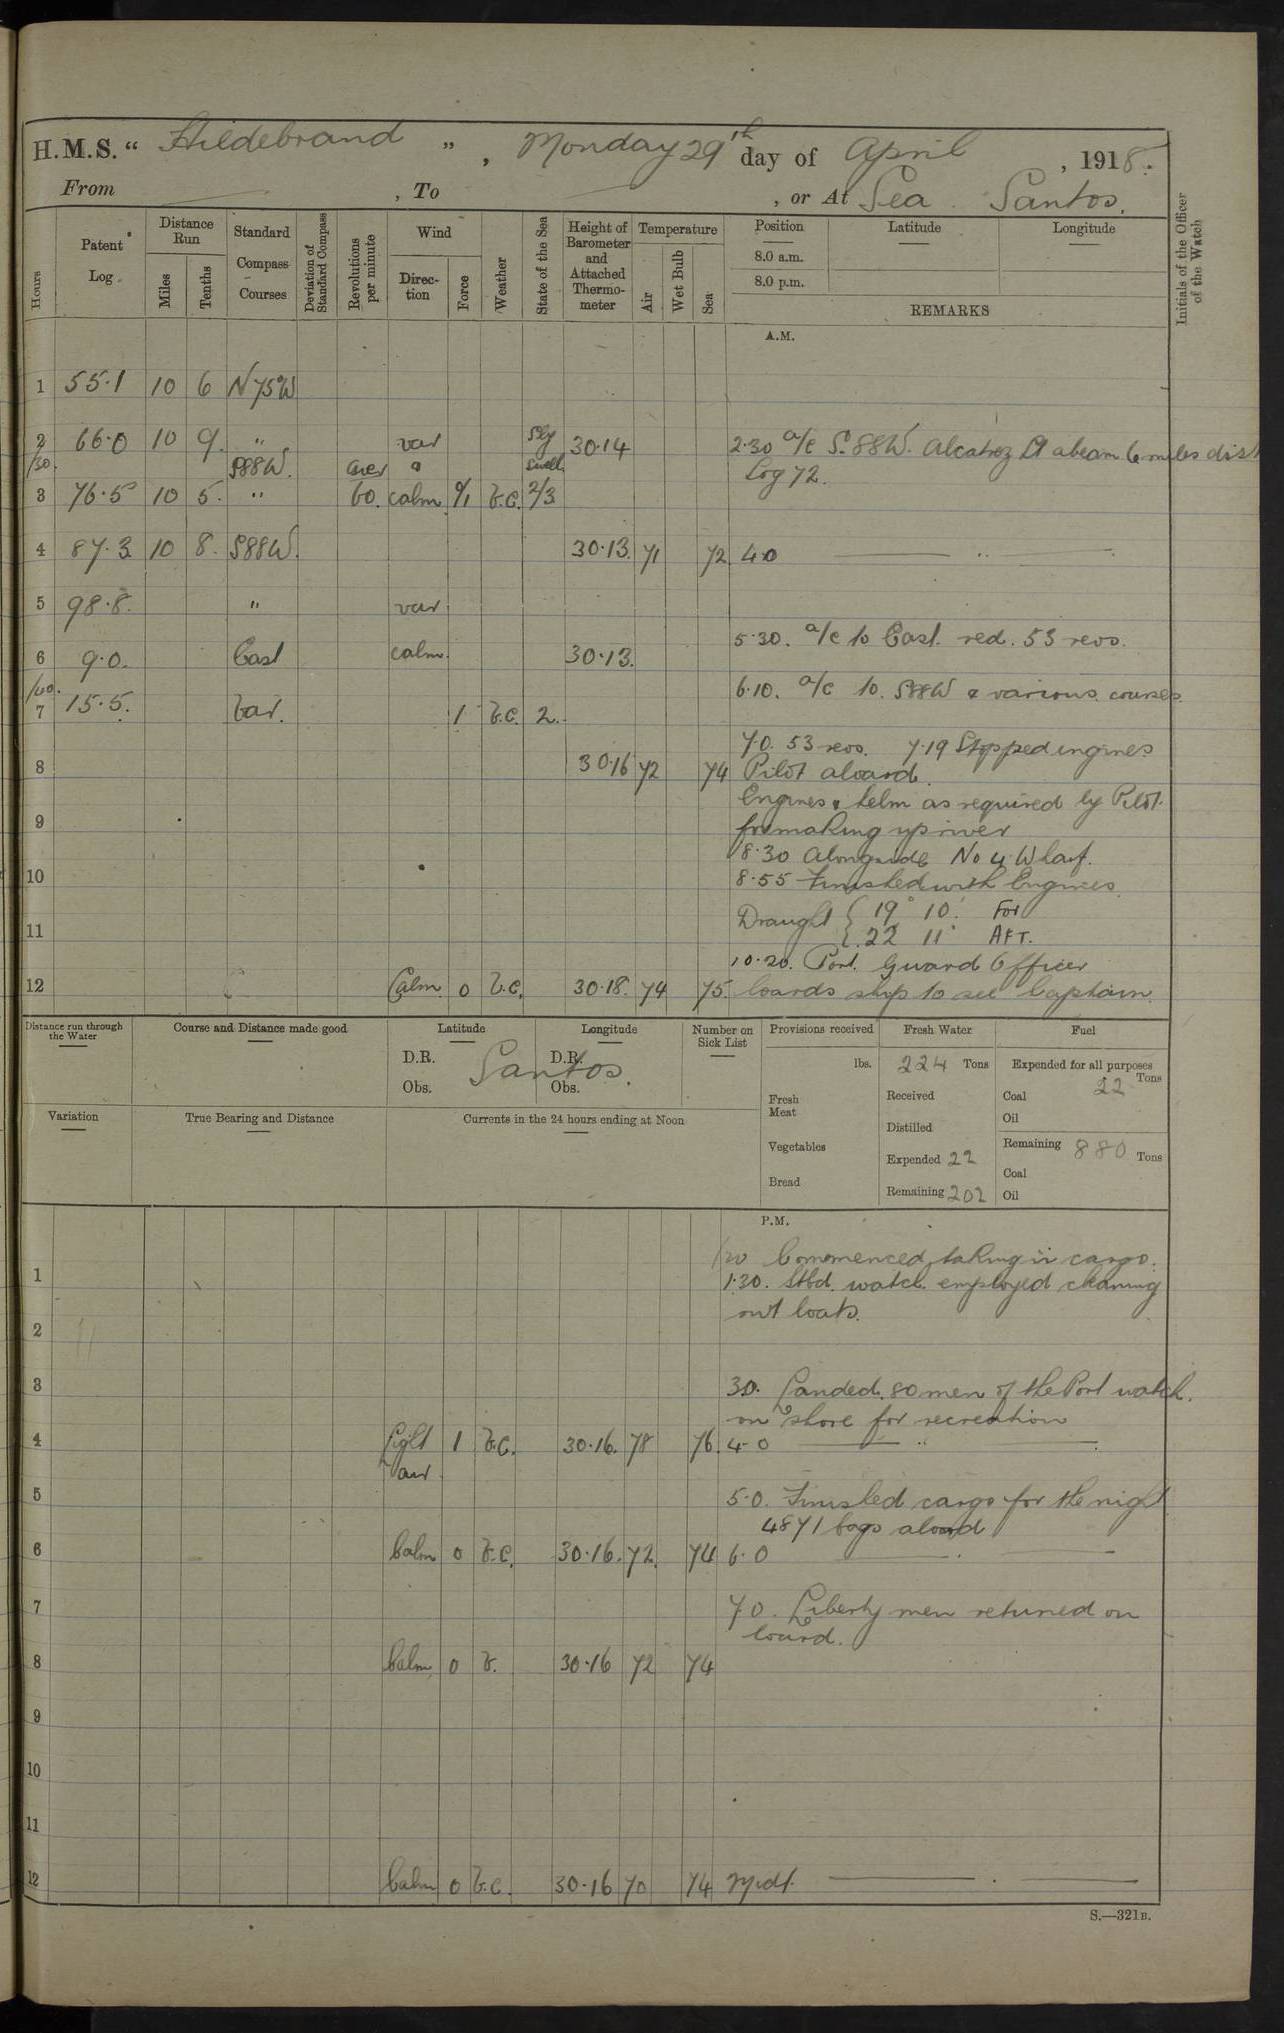 H.M.S. “ Hildebrand ” , Monday 29th day of April , 1918.
From , To , or At Sea . Santos.
Hours
Patent Log
Distance Run
Miles
Tenths
Standard Compass Courses
Deviation of Standard Compass
Revolutions per minute
Wind
Direction
Force
Weather
State of the Sea
Height of Barometer and Attached Thermometer
Temperature
Air
Wet Bulb
Sea
Position
Latitude
Longitude
8.0 a.m.
8.0 p.m.
REMARKS
Initials of the Officer of the Watch
A.M.
1 55.1 10 6 N75W
2 66.0 10 9. " var Sly 30.14 2.30 a/c S.88W. Alcatroz Lt abeam 6 miles dist
/30. S88W. Aver Swell Log 72.
3 76.5 10 5. " 60. calm 0/1 b.c. 2/3
4 87.3 10 8. S88W. 30.13. 71 72 4.0 "
5 98.8. " var
5.30. a/c to East. red. 53 revs.
6 9.0. East calm. 30.13.
6.10. a/c to. S88W & various courses
7 15.5. Var. 1 b.c. 2.
7.0. 53 revs. 7.19 Stopped engines
8 30.16 72 74 Pilot aboard.
Engines & helm as required by Pilot.
9 for making up river
8.30 Alongside No 4 Wharf.
10 8.55 Finished with Engines.
Draught { 19' 10" For
11 { 22 11" AFT.
10.20. Port Guard Officer
12 Calm 0 b.c. 30.18. 74 75. boards ship to see Captain.
Distance run through the Water
Course and Distance made good
Latitude
Longitude
D.R.
Obs.
Santos.
D.R.
Obs.
Number on Sick List
Provisions received
lbs.
Fresh Meat
Vegetables
Bread
Fresh Water
224 Tons
Received
Distilled
Expended 22
Remaining 202
Fuel
Expended for all purposes
22 Tons
Coal
Oil
Remaining 880 Tons
Coal
Oil
Variation
True Bearing and Distance
Currents in the 24 hours ending at Noon
P.M.
Commenced taking in cargo.
1 1.30. Stbd. watch employed cleaning
out boats.
2
3 3.0. Landed. 80 men of the Port watch.
on shore for recreation
4 Light 1 b.c. 30.16. 78 76. 4.0 "
air.
5 5.0. Finished cargo for the night
4871 bags aboard
6 Calm 0 b.c. 30.16. 72. 74 6.0
7 7.0. Liberty men returned on
board.
8 Calm 0 b. 30.16 72 74
9
10
11
12 Calm 0 b.c. 30.16 70 74 Midt.
S.—321B.